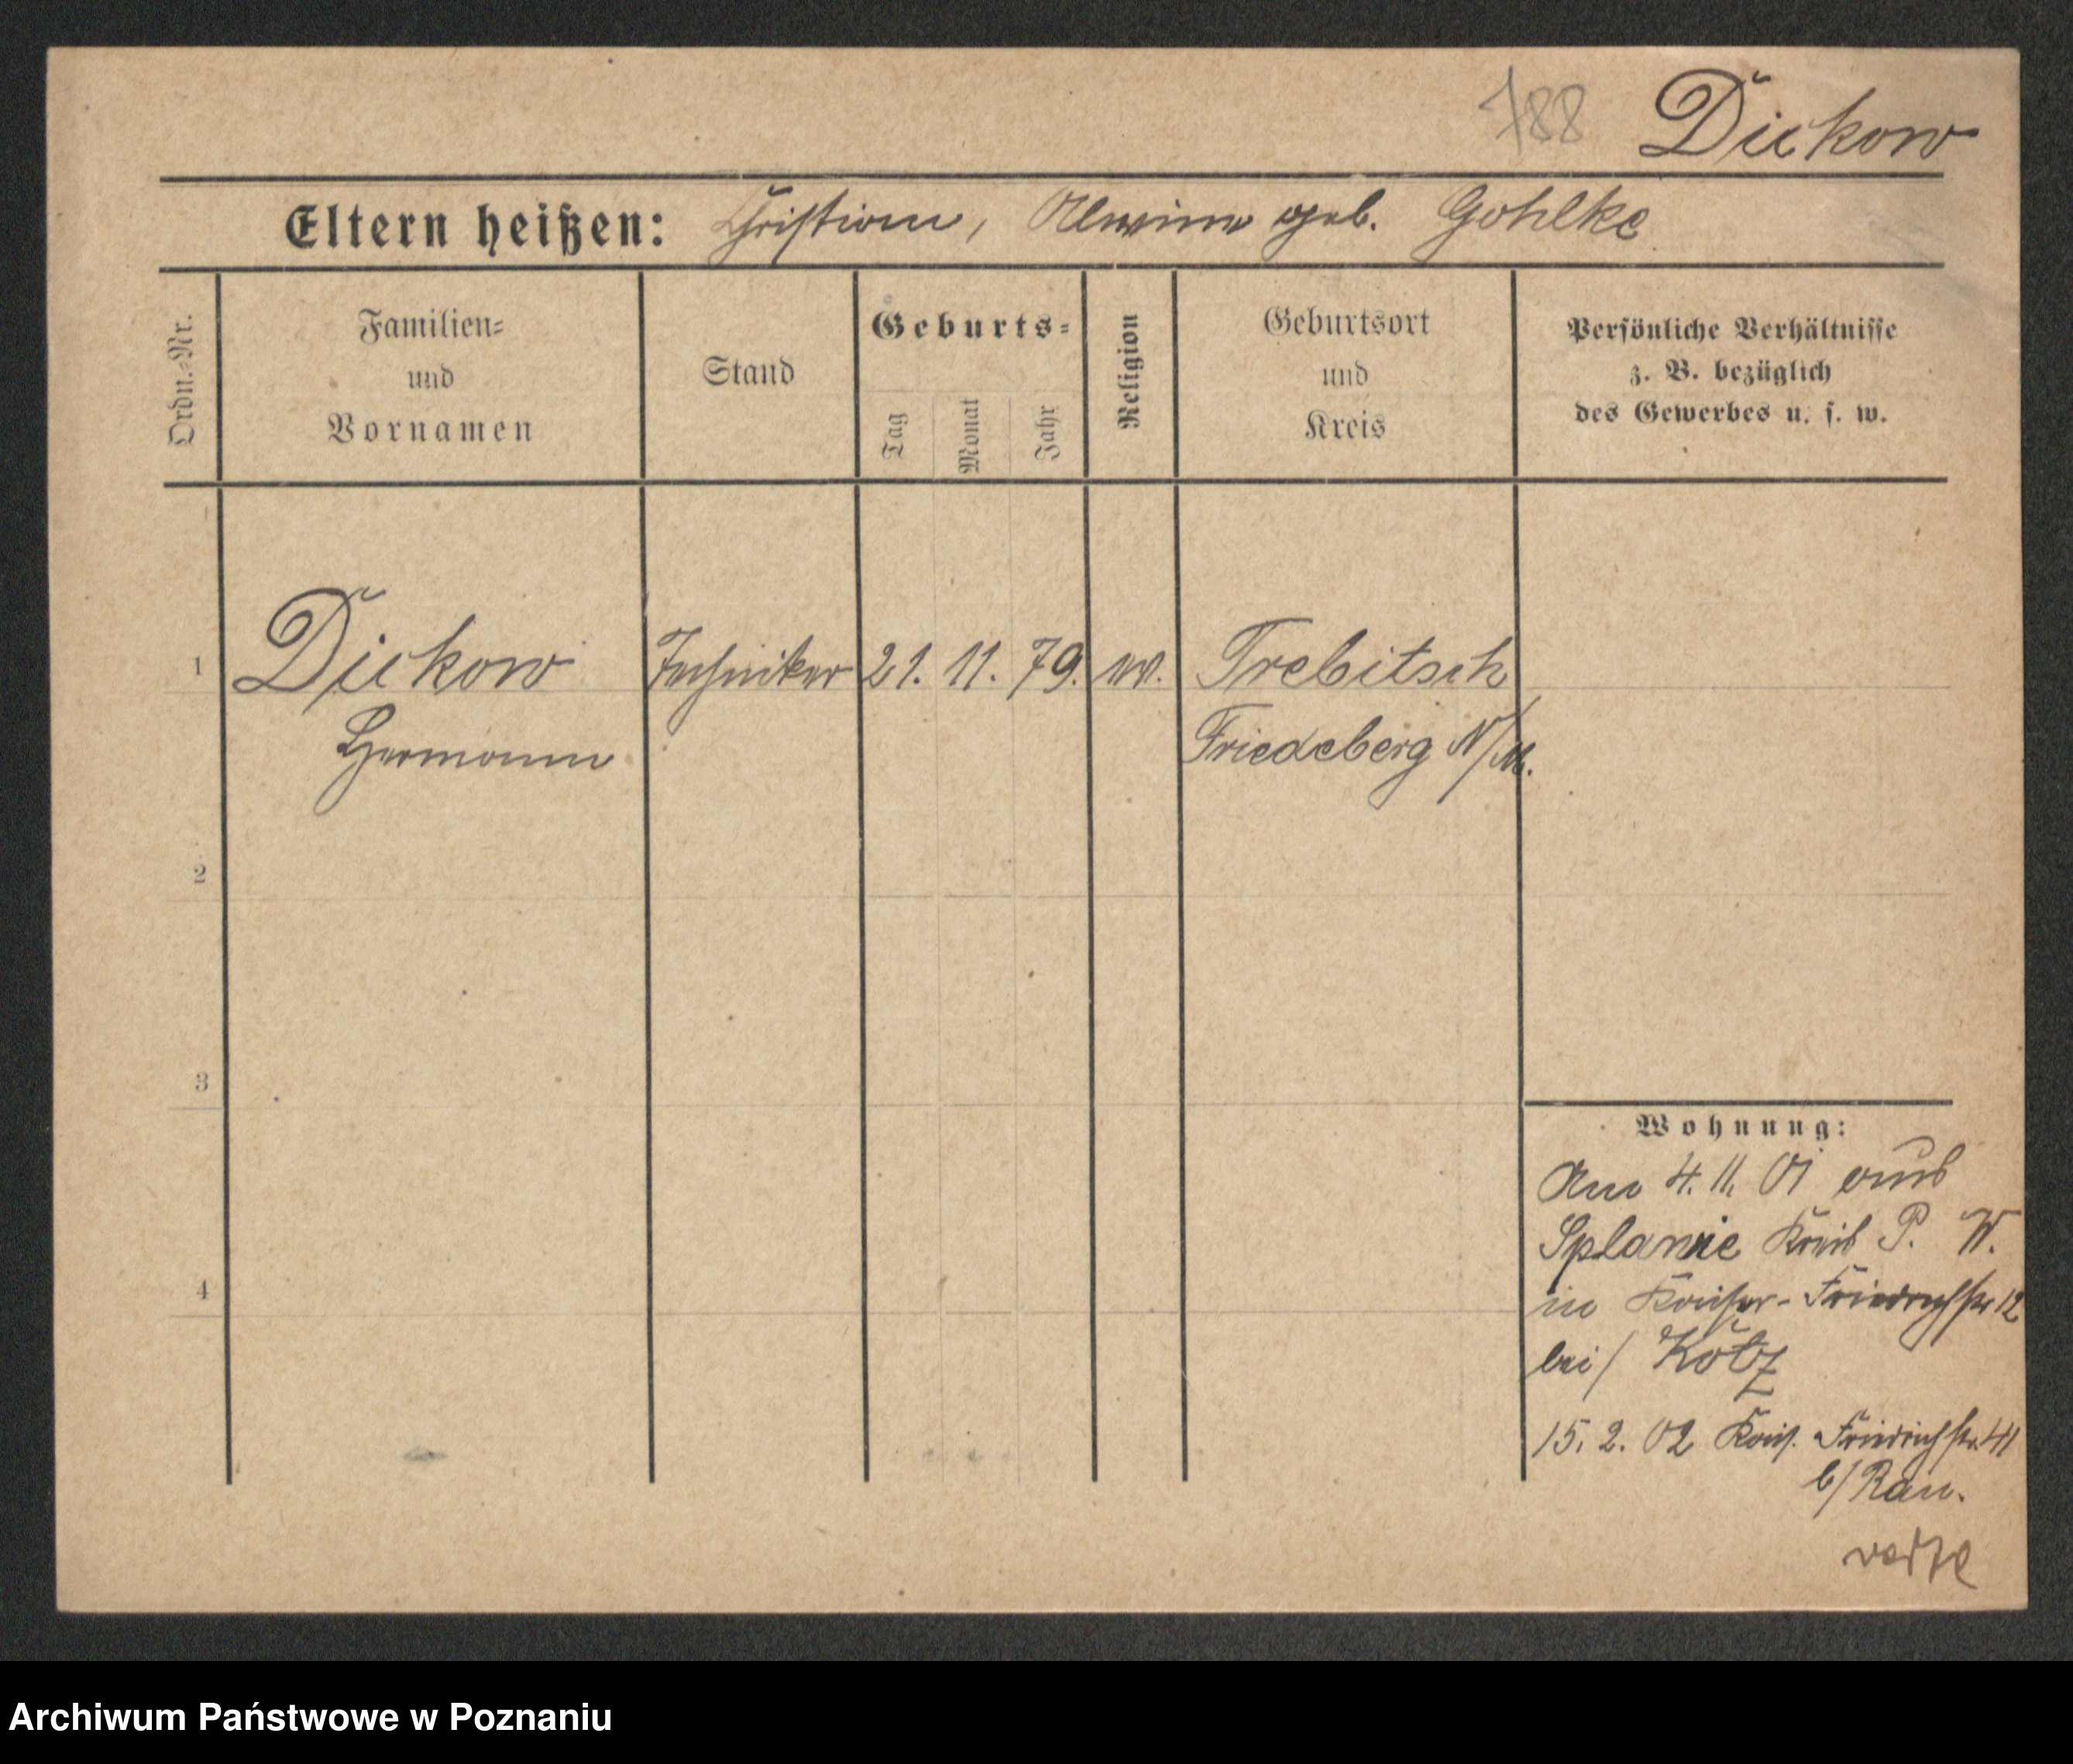 788 Dickow
Eltern heißen: Christian, Alwine geb. Gohlke
Ordn.-Nr.
Familien-
und
Vornamen
Stand
Geburts-
Tag
Monat
Jahr
Religion
Geburtsort
und
Kreis
Persönliche Verhältnisse
z. B. bezüglich
des Gewerbes u. s. w.
1 Dickow Techniker 21. 11. 79. ev. Trebitsch
Hermann Friedeberg N/M.
2
3
4
Wohnung:
Am 4. 11. 01 aus
Splawie Kreis P. W.
in Kaiser-Friedrichstr 12
bei/ Kötz
15. 2. 02 Kais. Friedrichstr. 41
b/ Rau.
Archiwum Państwowe w Poznaniu